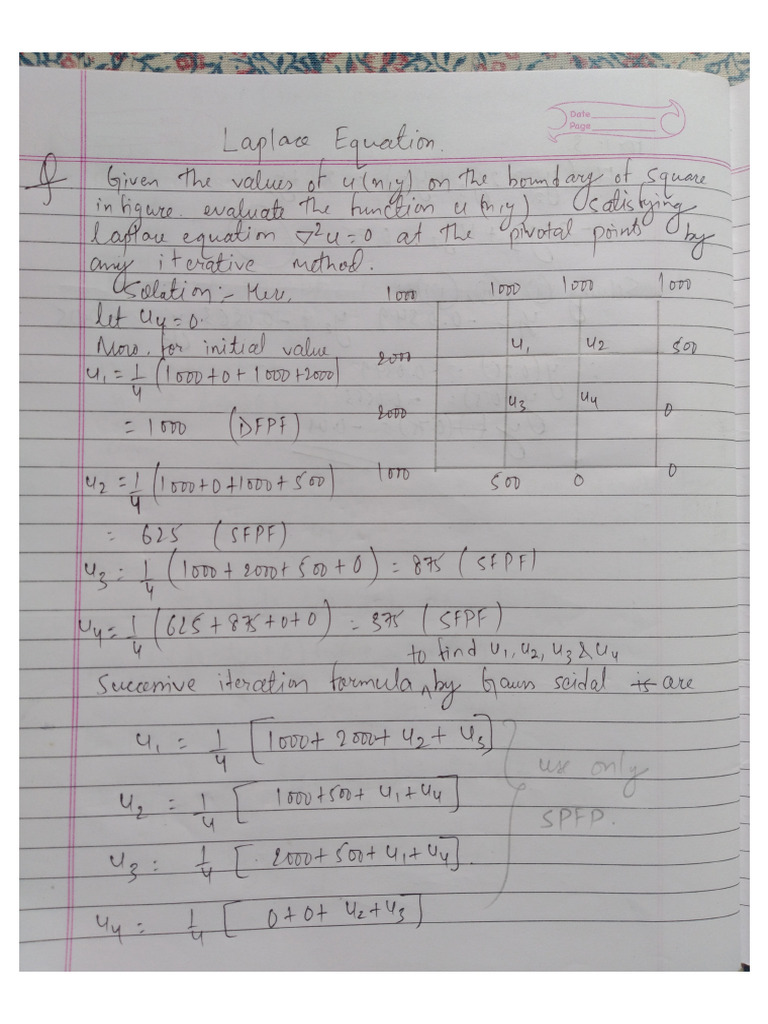 Date
Page
Laplace Equation.
Q Given the values of u(x,y) on the boundary of square
in figure. evaluate the function u(x,y) satisfying
laplace equation ∇²u=0 at the pivotal points by
any iterative method.
Solution:- Here,
let u4=0.
Now, for initial value
u1 = 1/4 (1000+0+1000+2000)
= 1000 (DFPF)
u2 = 1/4 (1000+0+1000+500)
= 625 (SFPF)
1000 1000 1000 1000
2000 u1 u2 500
2000 u3 u4 0
1000 500 0 0
u3 = 1/4 (1000+2000+500+0) = 875 (SFPF)
u4 = 1/4 (625+875+0+0) = 375 (SFPF)
to find u1, u2, u3 & u4
Successive iteration formula ^ by Gauss seidal is are
u1 = 1/4 [1000+2000+u2+u3]
use only
u2 = 1/4 [1000+500+u1+u4]
SPFP.
u3 = 1/4 [2000+500+u1+u4].
u4 = 1/4 [0+0+u2+u3]